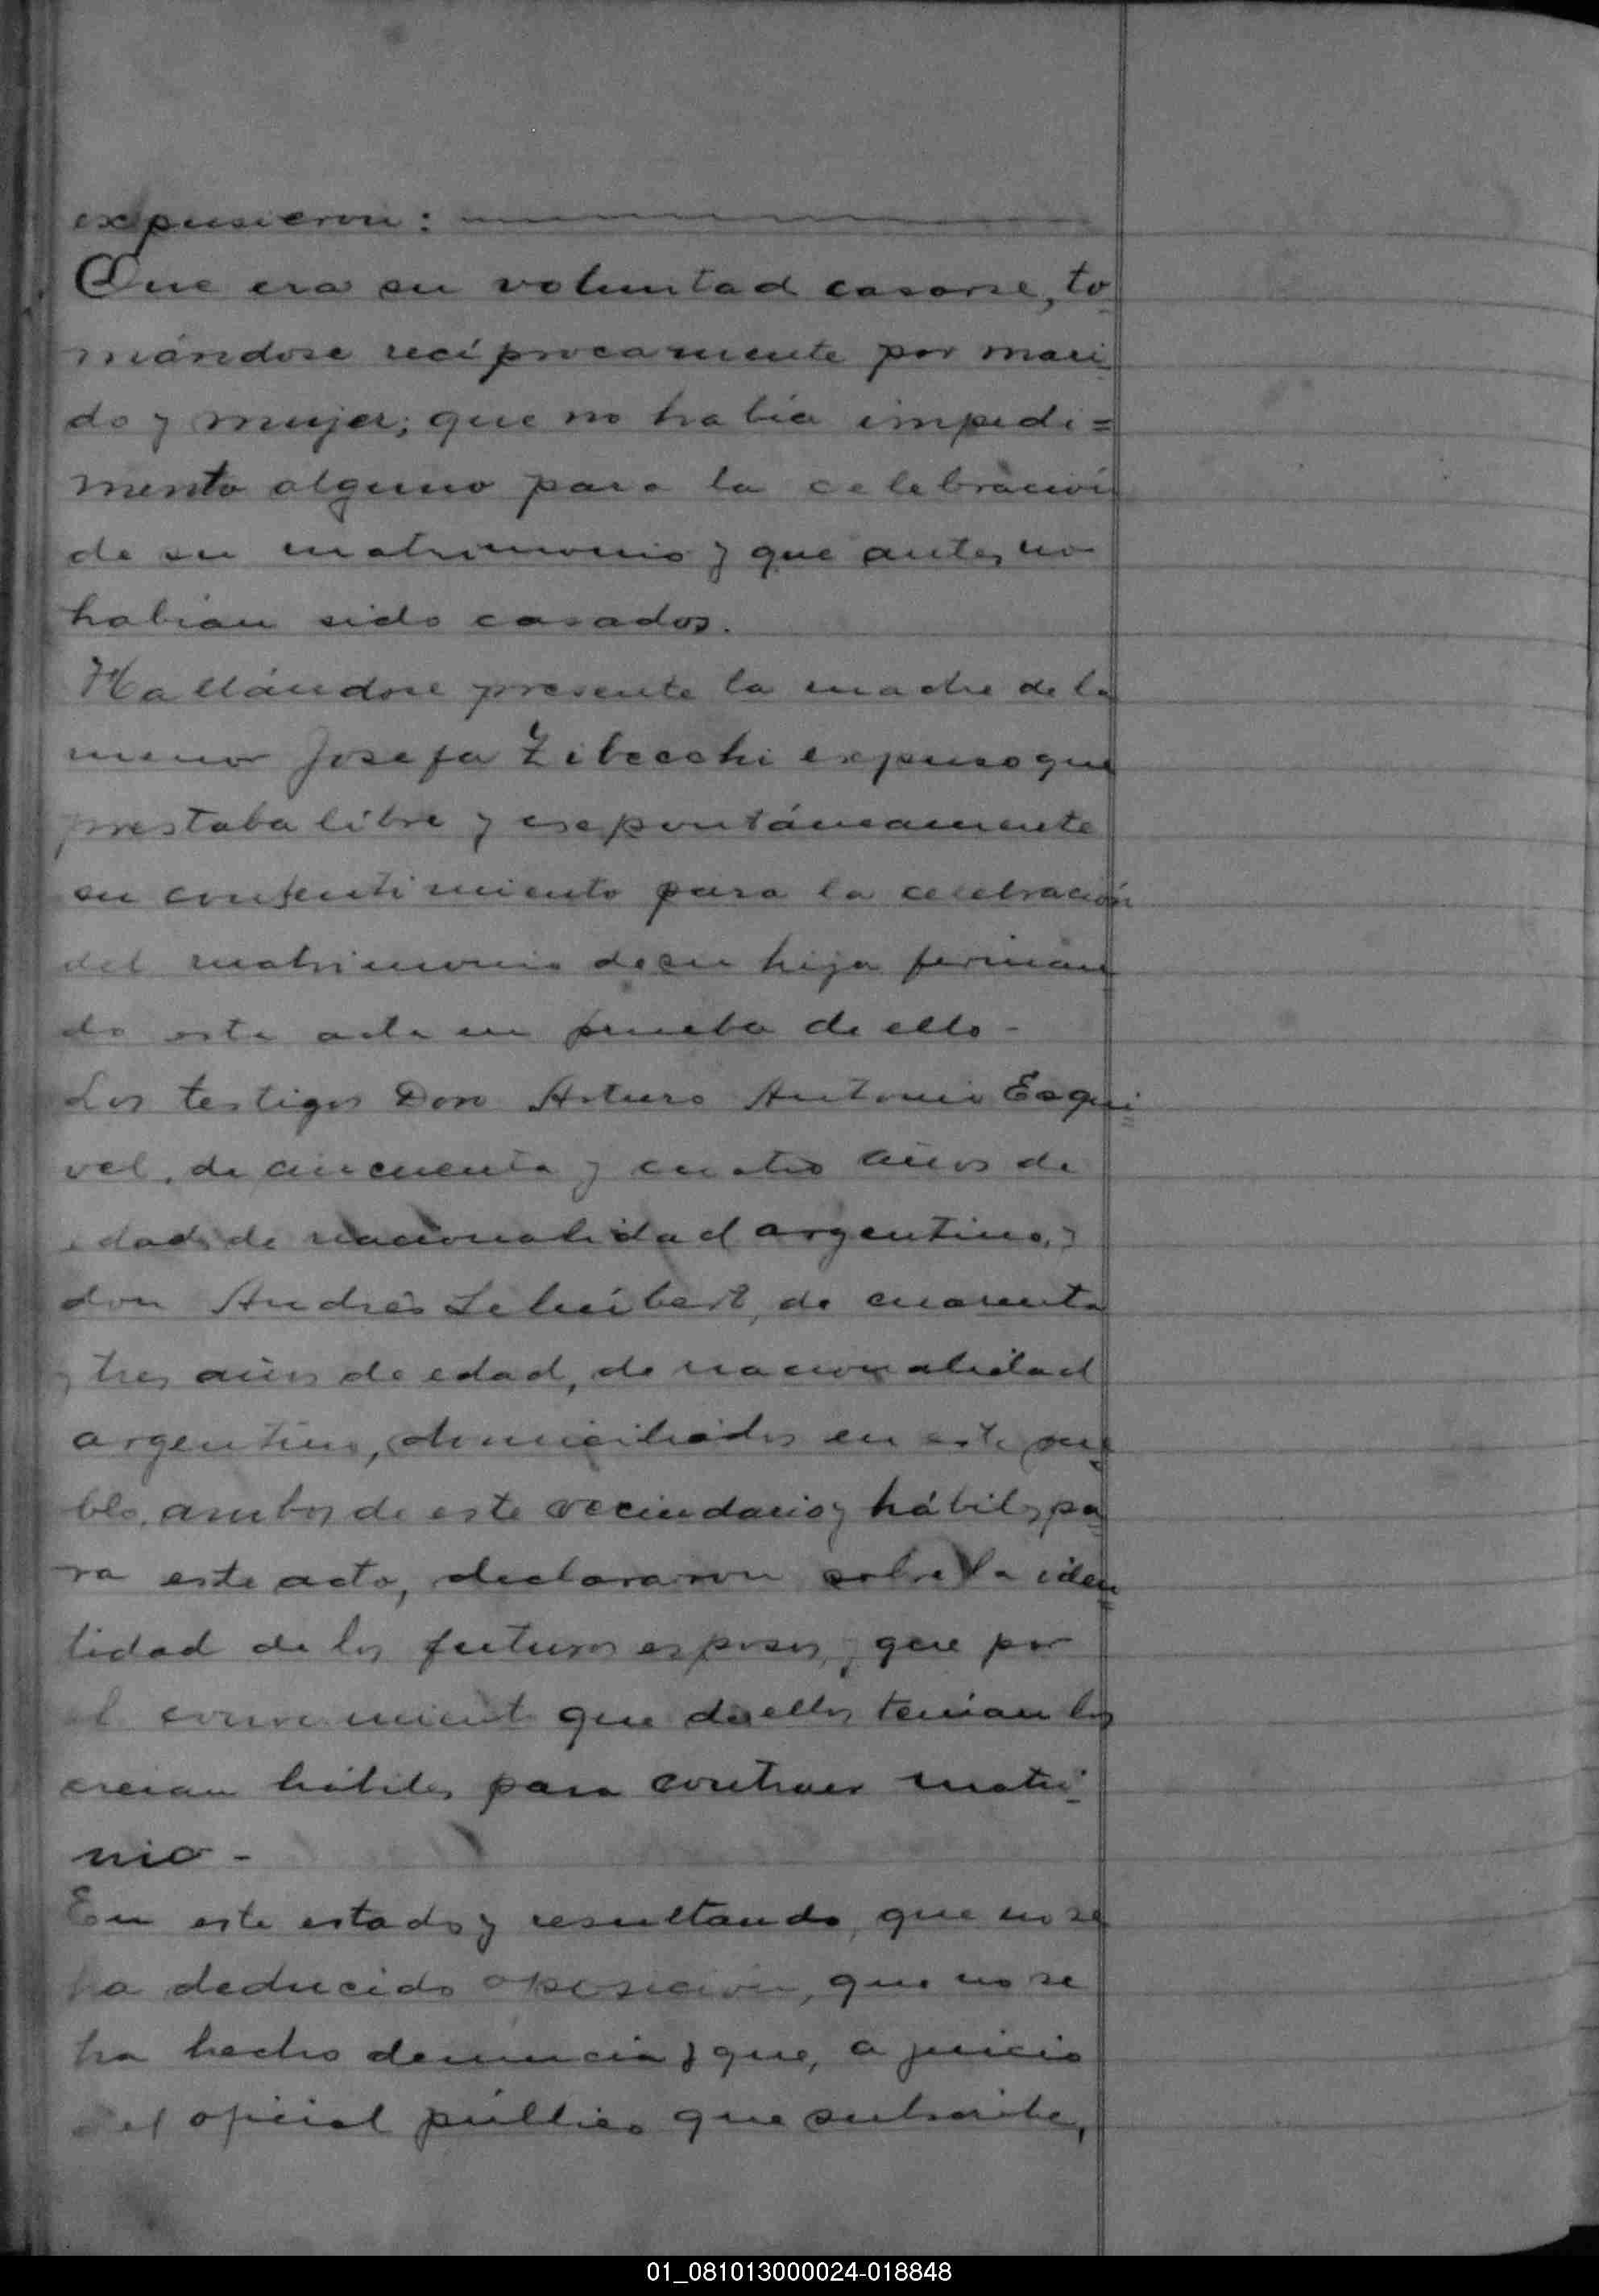 expusieron:
Que era su voluntad casarse, to
mándose recíprocamente por mari
do y mujer; que no había impedi=
mento alguno para la celebración
de su matrimonio y que antes no
habían sido casados.
Hallándose presente la madre de la
menor Josefa Zibecchi expuso que
prestaba libre y espontáneamente
su consentimiento para la celebración
del matrimonio de su hija firman
do esta acta en prueba de ello-
Los testigos Don Arturo Antonio Esqui
vel, de cincuenta y cuatro años de
edad, de nacionalidad argentino, y
don Andrés de cuarenta
y tres años de edad, de nacionalidad
argentino, domiciliados en este pue
blo, ambos de este vecindario y hábiles pa
ra este acto, declararon sobre la iden
tidad de los futuros esposos, y que por
el conocimiento que de ellos tenían los
creían hábiles para contraer matri
nio-
En este estado y resultando, que no se
ha deducido oposición, que no se
ha hecho denuncia y que, a juicio
del oficial público que subscribe,
01_081013000024-018848